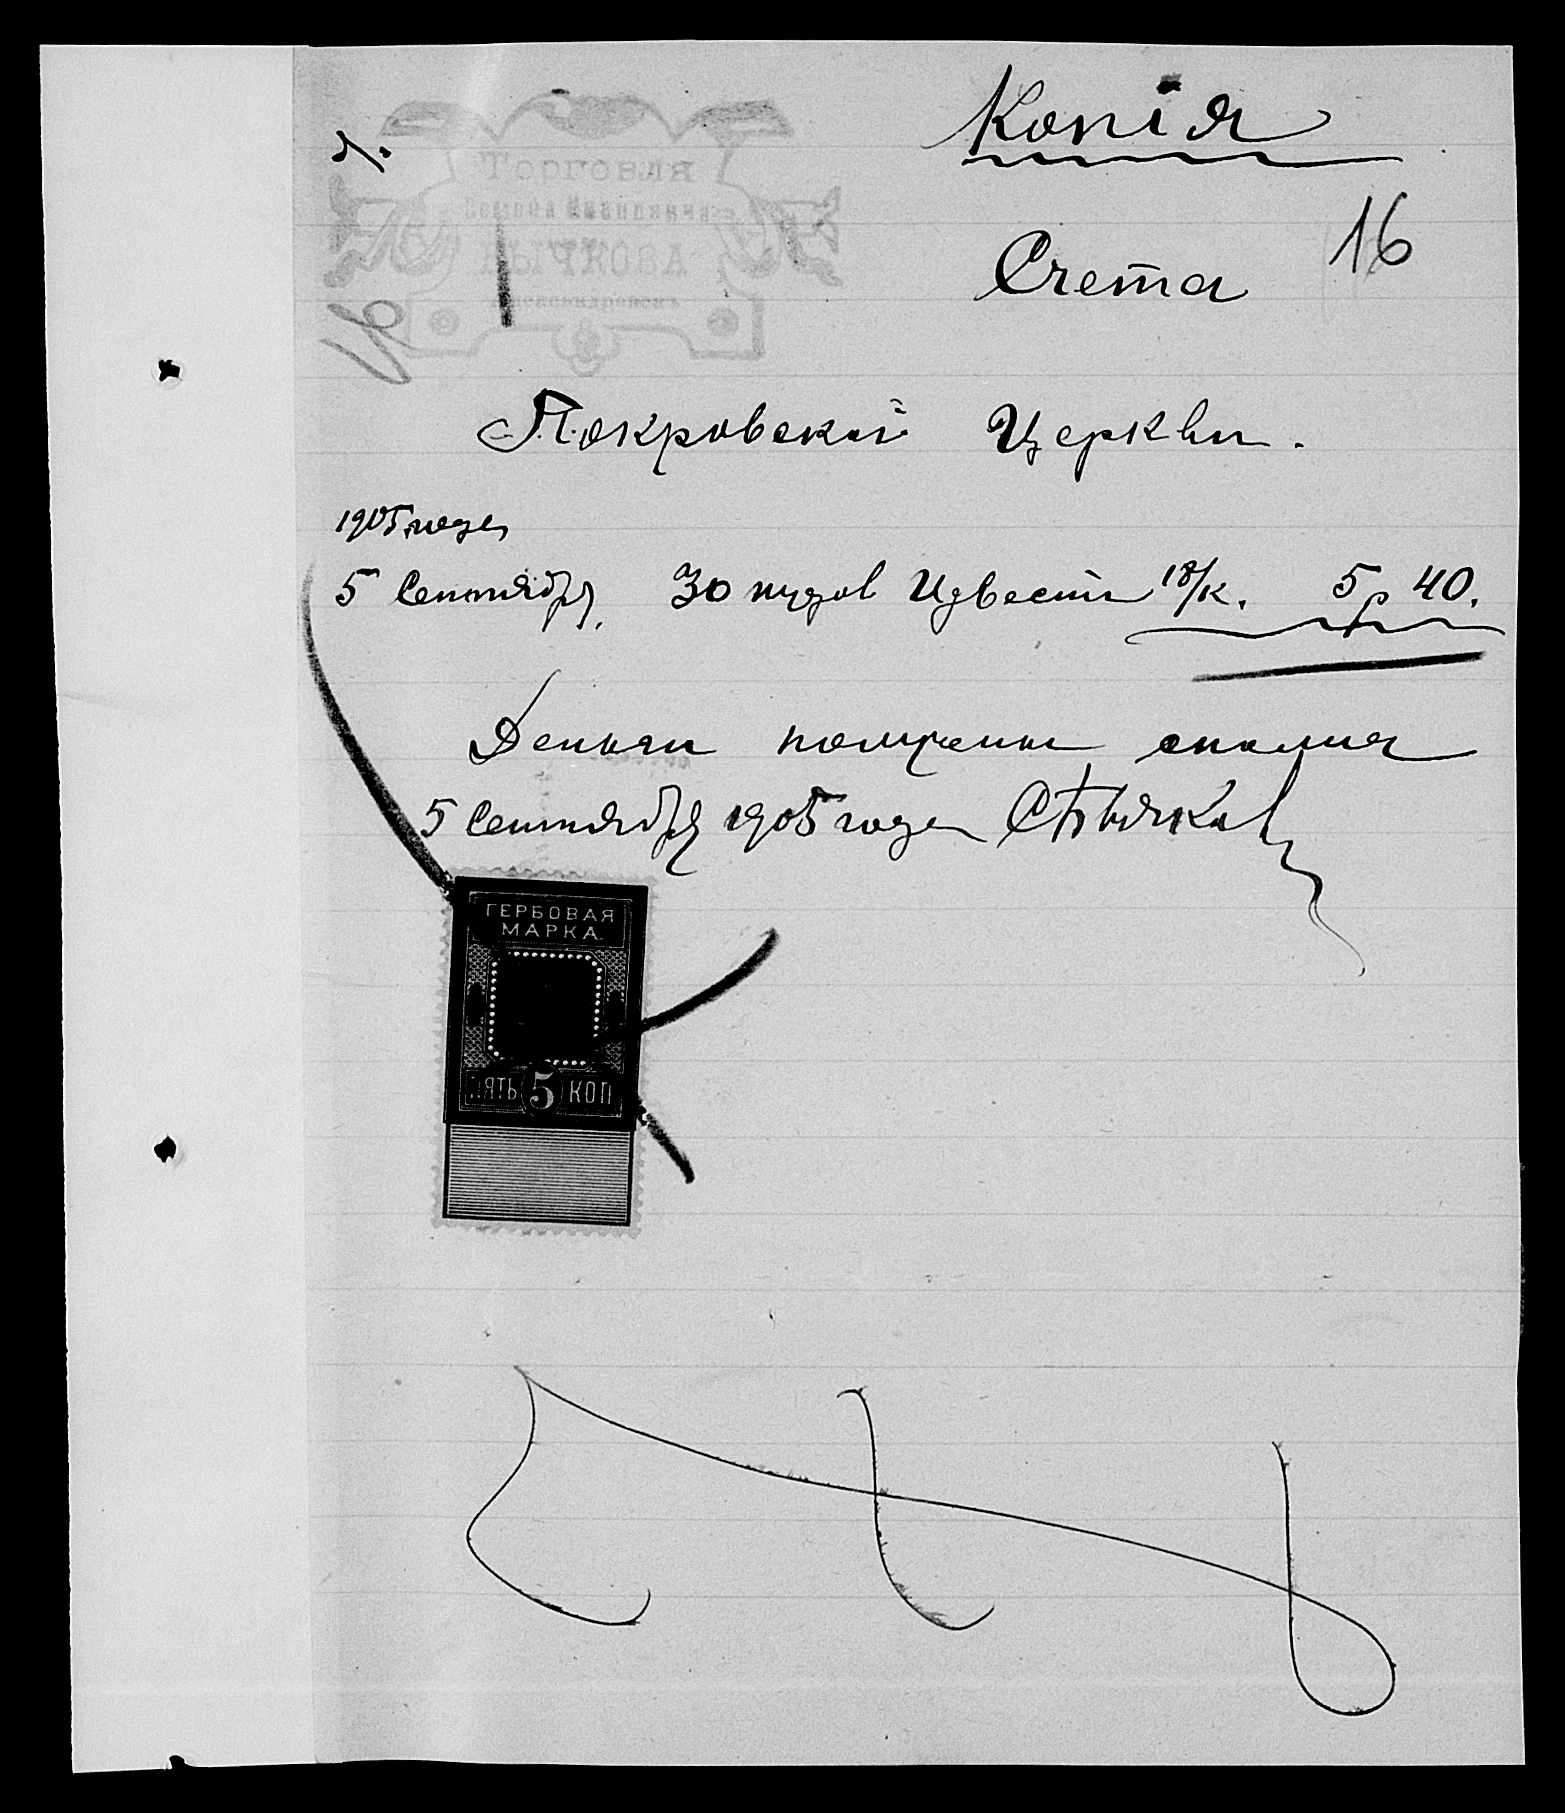 Копія
Торговля
Семена Ивановича
БЫЧКОВА
Александровскъ
Счета
16
Покровской Церкви.
1905 года
5 Сентября, 30 пудов Извести 18/к. 5р 40.
Деньги получены сполна
5 Сентября 1905 года СБычков
ГЕРБОВАЯ
МАРКА
ПЯТЬ 5 КОП